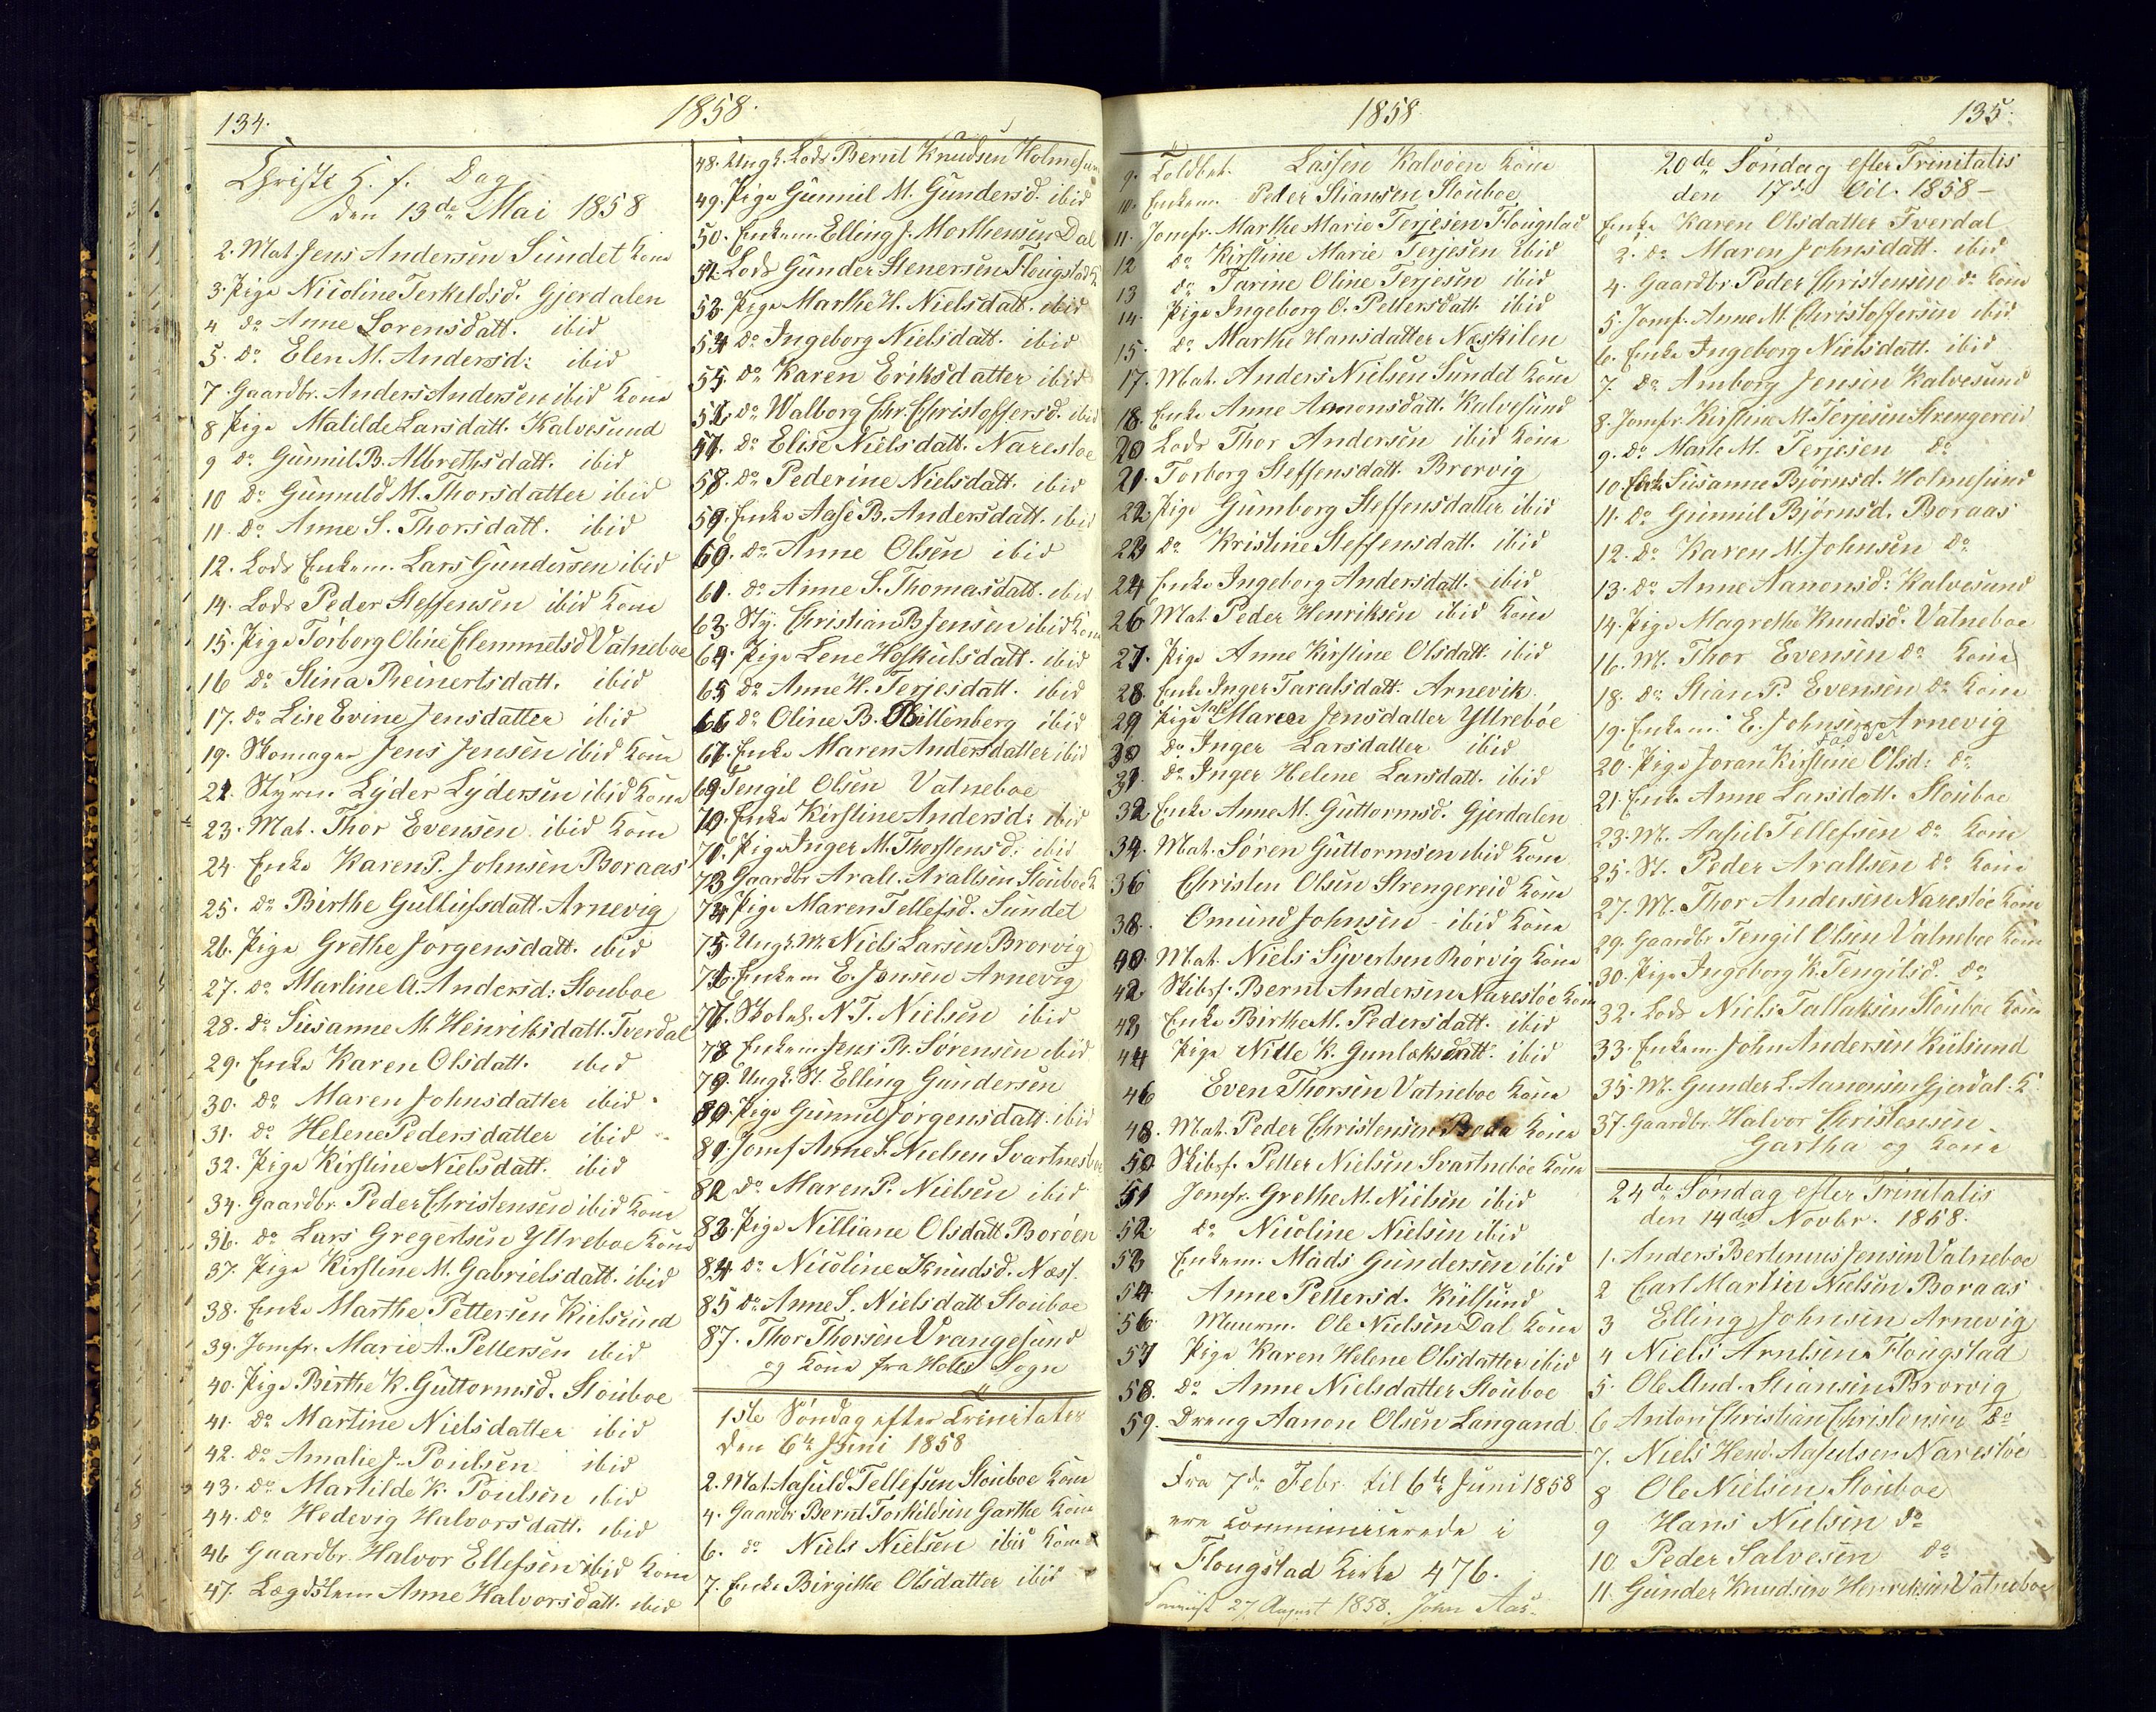 134.
1858.
Christi H. f. Dag
den 13de Mai 1858
2. Mat. Jens Andersen Sundet Kone
3. Pige Nicoline Terkeldsd. Gjerdalen
4 do Anne Lorensdatt. ibid
5. do Elen M. Andersd: ibid
7. Gaardbr. Anders Andersen ibid Kone
8 Pige Matilde Larsdatt. Kalvesund
9 do Gunnil B. Albrethsdatt. ibid
10 do Gunneld M. Thorsdatter ibid
11. do Anne S. Thorsdatt. ibid
12. Lods Enkem. Lars Gundersen ibid
14. Lods Peder Steffensen ibid Kone
15. Pige Torborg Oline Clemmetsd Vatneboe
16 do Stina Reinertsdatt. ibid
17. do Lise Evine Jensdatter ibid
19. Skomager Jens Jensen ibid Kone
21. Styrm. Lyder Lydersen ibid Kone
23. Mat. Thor Evensen ibid Kone
24. Enke Karen P. Johnsen Boraas
25. do Birthe Gulliefsdatt. Arnevig
26. Pige Grethe Jorgensdatt. ibid
27. do Martine A. Andersd: Stouboe
28. do Susanne M. Heinriksdatt. Tverdal
29. Enke Karen Olsdatt. ibid
30. do Maren Johnsdatter ibid
31. do Helene Pedersdatter ibid
32. Pige Kirstine Nielsdatt. ibid
34. Gaardbr. Peder Christensen ibid Kone
36. do Lars Gregertsen Yttreboe Kone
37. Pige Kirstine M. Gabrielsdatt. ibid
38. Enke Marthe Pettersen Kielsund
39. Jomfr. Marie A. Pettersen ibid
40. Pige Birthe K. Guttormsd. Stouboe
41. do Martine Nielsdatter ibid
42. do Amalie J. Poulsen ibid
43. do Martilde K. Poulsen ibid
44. do Hedevig Halvorsdatt. ibid
46 Gaardbr. Halvor Ellefsen ibid Kone
47. Lægdslem Anne Halvorsdatt. ibid
48. Ungk. Lods Bernt Knudsen Holmesund
49. Pige Gunnil M. Gundersd. ibid
50. Enkem. Elling J. Morthensen Dal
52. Lods Gunder Stenersen Flougstad K
53. Pige Marthe H. Nielsdatt. ibid
54 do Ingeborg Nielsdatt. ibid
55. do Karen Eriksdatter ibid
56. do Walborg Chr. Christoffersd. ibid
57. do Elise Nielsdatt. Narestoe
58. do Pederine Nielsdatt. ibid
59. Enke Aase B. Andersdatt. ibid
60. do Anne Olsen ibid
61. do Anne S. Thomasdatt. ibid
63. Sty. Christian B Jensen ibid Kone
64. Pige Lene Hoskulsdatt. ibid
65 do Anne H. Terjesdatt. ibid
66 do Oline B. Wittenberg ibid
67. Enke Maren Andersdatter ibid
69. Tengil Olsen Vatneboe
70. Enke Kirstine Andersd: ibid
71. Pige Inger M. Thorstensd: ibid
73 Gaardbr Aralt. Araltsen Stouboe K
74. Pige Maren Tellefsd. Sundet
75. Ungk. M. Niels Larsen Brorvig
76. Enkem E. Jonsen Arnevig
77. Skoleh. N. T. Nielsen ibid
78 Enkem Jens R. Sørensen ibid
79. Ungk. St. Elling Gundersen
80. Pige Gunnil Jorgensdatt. ibid
81. Jomf Anne S. Nielsen Svartnesboe
82 do Maren P. Nielsen ibid
83. Pige Nilliane Olsdatt Boroen
84 do Nicoline Knudsd. Næsf.
85 do Anne S. Nielsdatt Stouboe
87. Thor Thorsen Vrangesund
og Kone fra Holts Sogn
1ste Søndag efter Trinitatis
den 6te Juni 1858
2. Mat. Aasuld Tellefsen Stouboe Kone
4. Gaardbr Bernt Torkildsen Gartha Kone
6. do Niels Nielsen ibid Kone
7. Enke Birgithe Olsdatter ibid
1858
135.
9. Toldbet. Lassen Kalvøen Kone
10. Enkem. Peder Stiansen Stouboe
11. Jomfr. Marthe Marie Terjesen Flougstad
12 do Kirstine Marie Terjesen ibid
13 do Tarine Oline Terjesen ibid
14. Pige Ingeborg O. Pettersdatt. ibid
15. do Marthe Hansdatter Neskilen
17. Mat. Anders Nielsen Sundet Kone
18. Enke Anne Aamonsdatt. Kalvesund
20 Lods Thor Andersen ibid Kone
21. Torborg Steffensdatt. Brorvig
22. Pige Gumborg Steffensdatter ibid
23 do Kristine Steffensdatt. ibid
24 Enke Ingeborg Andersdatt. ibid
26 Mat. Peder Henriksen ibid Kone
27. Pige Anne Kirstine Olsdatt. ibid
28. Enke Inger Taralsdatt. Arnevik
29 Pige Maren Jensdatter Yttreboe
30 do Inger Larsdatter ibid
31. do Inger Helene Larsdatt. ibid
32 Enke Anne M. Guttormsd. Gjerdalen
34. Mat. Søren Guttormsen ibid Kone
36 Christen Olsen Strengereid Kone
38. Omund Johnsen - ibid Kone
40. Mat. Niels Syvertsen Rörvig Kone
42. Skibsf. Bernt Andersen Narestöe Kone
43. Enke Birthe M. Pedersdatt. ibid
44 Pige Nille K. Gunlæksdatt. ibid
46 Even Thorsen Vatneboe Kone
48. Mat. Peder Christensen Boda Kone
50. Skibsf. Petter Nielsen Svartneboe Kone
51 Jomfr. Grethe M. Nielsen ibid
52. do Nicoline Nielsen ibid
53 Enkem. Mads Gundersen ibid
54 Anne Pettersd. Kielsund
56 Muurm. Ole Nielsen Dal Kone
57 Pige Karen Helene Olsdatter ibid
58. do Anne Nielsdatter Stouboe
59. Dreng Aanon Olsen Langand
Fra 7de Febr. til 6te Juni 1858
ere communicerede i
Flougstad Kirke 476.
27 August 1858. John Aas.
20de Søndag efter Trinitatis
den 17de Oct. 1858 -
Enke Karen Olsdatter Tverdal
2. do Maren Johnsdatt. ibid
4. Gaardbr. Peder Christensen do Kone
5. Jomf. Anne M. Christoffersen ibid
6. Enke Ingeborg Nielsdatt. ibid
7. do Amborg Jensen Kalvesund
8. Jomfr. Kirstine M. Terjesen Strengereid
9. do Marte M. Terjesen do
10. Enke Susanne Bjørnsd. Holmesund
11. do Gunnil Bjørnsd. Boraas
12. do Karen M. Johnsen do
13. do Anne Aanonsd: Kalvesund
14. Pige Magrethe Knudsd. Vatneboe
16. M. Thor Evensen do Kone
18. do Stian P. Evensen do Kone
19. Enkem. E. Johnsen Arnevig
20. Pige Joran Kirstine Olsd: do
21. Enke Anne Larsdatt. Stouboe
23. M. Aasul Tellefsen do Kone
25. St. Peder Araltsen do Kone
27. M. Thor Andersen Narestöe Kone
29. Gaardbr Tengil Olsen Vatneboe Kone
30. Pige Ingeborg K. Tengilsd. do
32. Lods Niels Tallaksen Stouboe Kone
33. Enkem. John Andersen Kielsund
35. M. Gunder L. Aanonsen Gjerdal. K.
37. Gaardbr. Halvor Christensen
Gartha og Kone
24de Søndag efter Trinitatis
den 14de Novbr. 1858.
1. Anders Bertinius Jensen Vatneboe
2 Carl Martin Nielsen Boraas
3 Elling Johnsen Arnevig
4 Niels Arntsen Flougstad
5. Ole And. Stiansen Brorvig
6 Anton Christian Christensen do
7. Niels Hend. Aasulsen Narestöe
8 Ole Nielsen Stouboe
9 Hans Nielsen do
10. Peder Salvesen do
11. Gunder Knudsen Henriksen Vatneboe